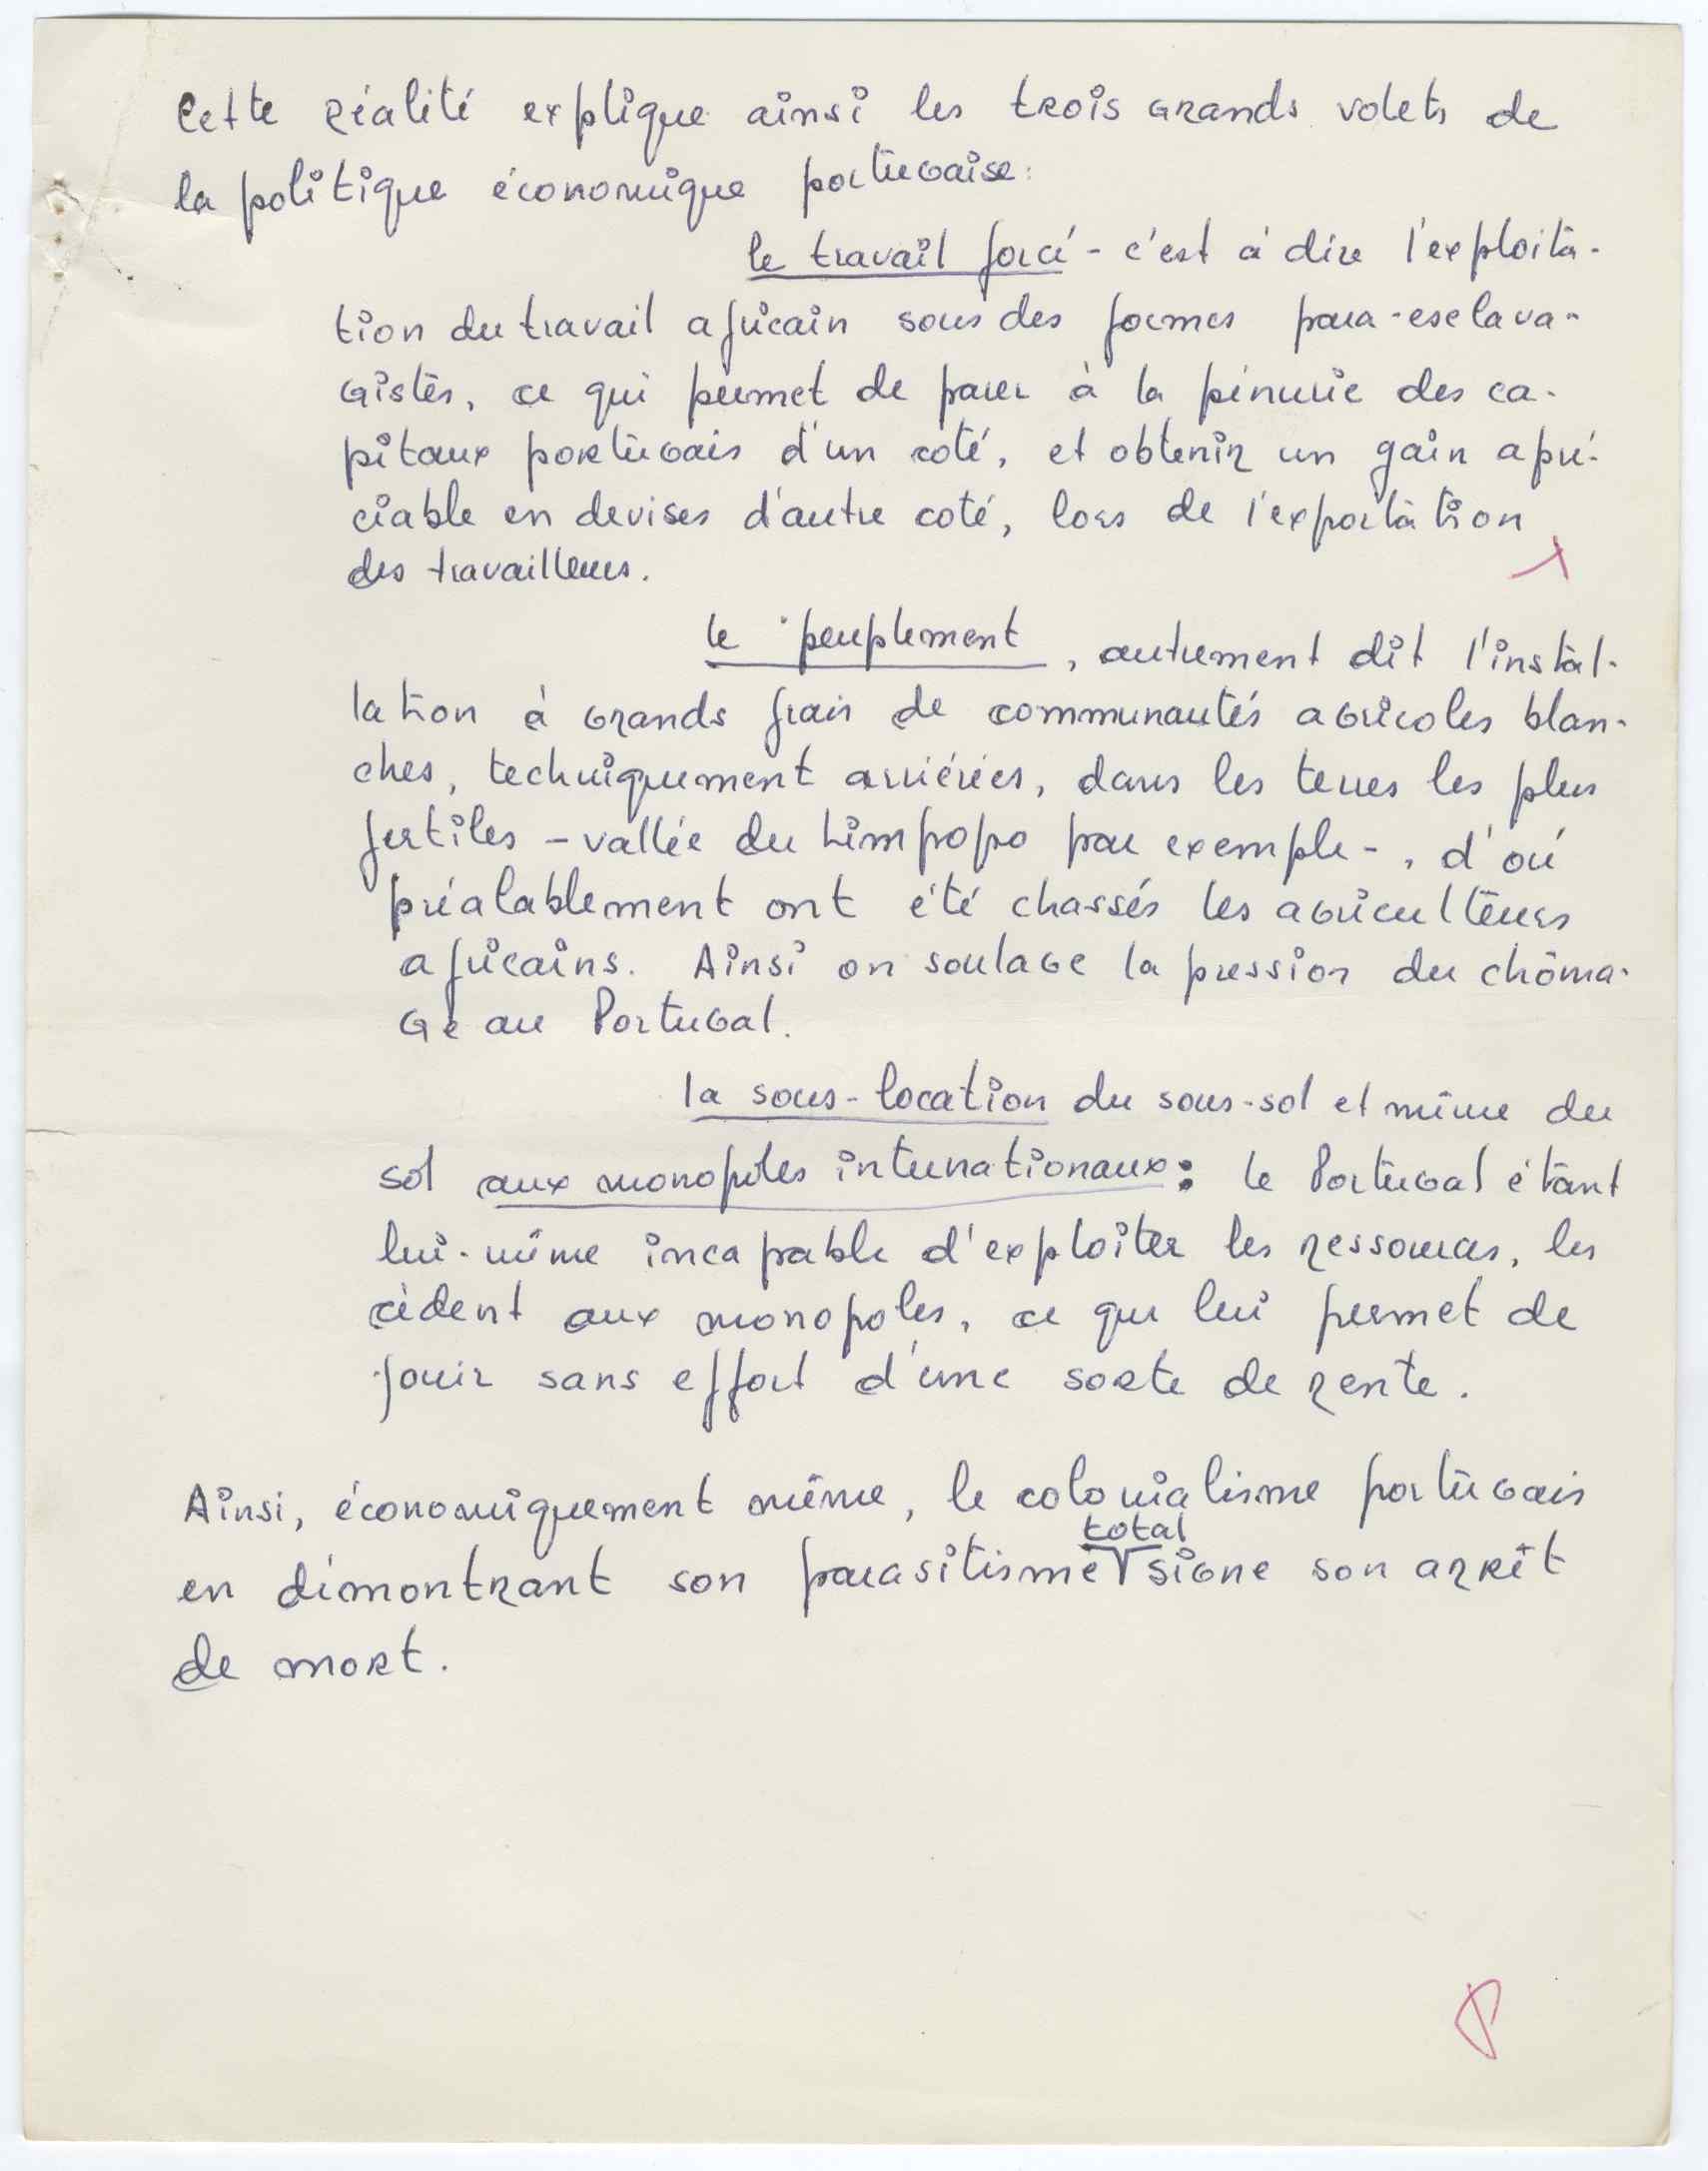 Cette réalité explique ainsi les trois grands volets de
la politique économique portugaise:
le travail forcé - c'est à dire l'exploita-
tion du travail africain sous des formes para-esclava-
gistes, ce qui permet de parer à la pénurie des ca-
pitaux portugais d'un coté, et obtenir un gain apré-
ciable en devises d'autre coté, lors de l'exportation
des travailleurs.
le peuplement, autrement dit l'instal-
lation à grands frais de communautés agricoles blan-
ches, techniquement arriérées, dans les terres les plus
fertiles - vallée du Limpopo par exemple -, d'où
préalablement ont été chassés les agriculteurs
africains. Ainsi on soulage la pression du chôma-
ge au Portugal.
la sous-location du sous-sol et même du
sol aux monopoles internationaux: le Portugal étant
lui-même incapable d'exploiter les ressources, les
cèdent aux monopoles, ce que lui permet de
jouir sans effort d'une sorte de rente.
Ainsi, économiquement même, le colonialisme portugais
en démontrant son parasitisme total signe son arrêt
de mort.